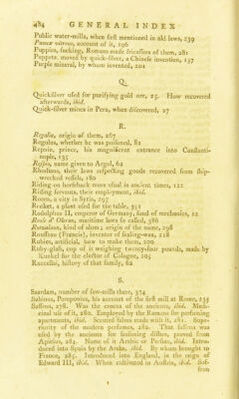 484 GENERAL INDEX
Public water-mills, when first mentioned in old laws, 239
Pumex vitreus, account of it, 196
Puppies, sucking, Romans made fricassees of them, 281
Puppets, moved by quick-silver, a Chinese invention, 137
Purple mineral, by whom invented, 202
Q.
Quicksilver used for purifying gold ore, 25. How recovered
afterwards, ibid.
Quick-silver mines in Peru, when discovered, 27
R.
Regalia, origin of them, 267
Regulus, whether he was poisoned, 82
Repnin, prince, his magnificent entrance into Constanti-
nople, 135
name given to Argol, 62
Rhodians, their laws respecting goods recovered from ship-
wrecked vessels, 180
Riding on horseback most usual in ancient times, 112
Riding servants, their employment, ibid.
Room, a city in Syria, 297
Rocket, a plant used for the table, 351
Rodolphus II, emperor of Germany, fond of mechanics, 12
Roole d'Oleron, maritime laws so called, 386
kind of alum; origin of the name, 298
Rousseau (Francis), inventor of sealing-wax, 218
Rubies, artificial, how to make them, 200
Ruby-glass, cup of it weighing twenty-four pounds, made by
Kunkel for the elector of Cologne, 205
Ruccellai, history of that family, 62
S.
Saardam, number of saw-mills there, 374
Sabinus, Pomponius, his account of the first mill at Rome, 235
Saffron, 278. Was the crocus of the ancients, ibid. Medi-
cinal use of it, 280. Employed by the Romans for perfuming
apartments, ibid. Scented salves made with it, 281. Supe-
riority of the modern perfumes, 282. That saffron was
used by the ancients for seasoning dishes, proved from
Apicius, 284. Name of it Arabic or Persian, ibid. Intro-
duced into Spain by the Arabs, ibid. By whom brought to
France, 285. Introduced into England, in the reign of
Edward III, ibid. When cultivated in Austria, ibid. Saf-
fron